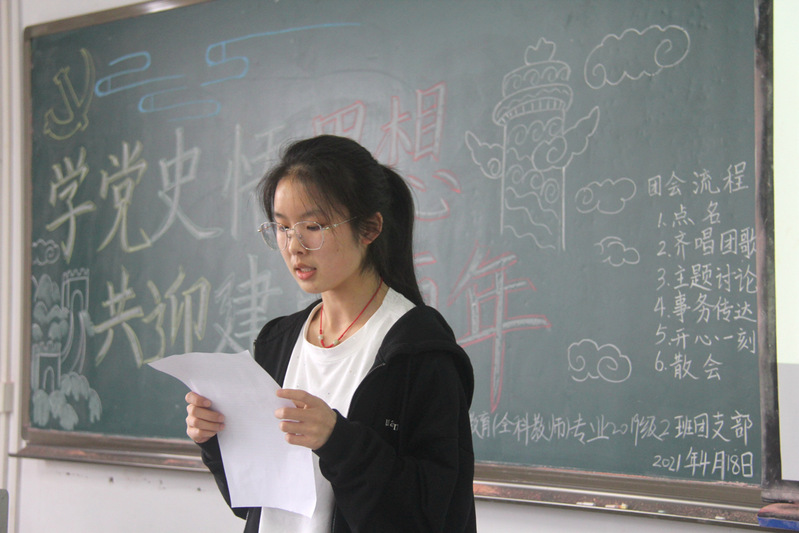 学党史悟思想
共迎建 百年
团会流程
1.点名
2.齐唱团歌
3.主题讨论
4.事务传达
5.开心一刻
6.散会
教育(全科教师)专业2019级2班团支部
2021年4月18日